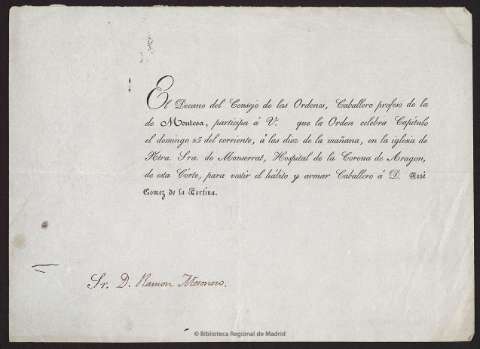 El Decano del Consejo de las Ordenes, Caballero profeso de la
de Montesa, participa á V. que la Orden celebra Capitulo
el domingo 25 del corriente, á las diez de la mañana, en la iglesia de
Ntra. Sra. de Monserrat, Hospital de la Corona de Aragon,
de esta Córte, para vestir el hábito y armar Caballero á D. José
Gomez de la Cortina.
Sr. D. Ramon
© Biblioteca Regional de Madrid